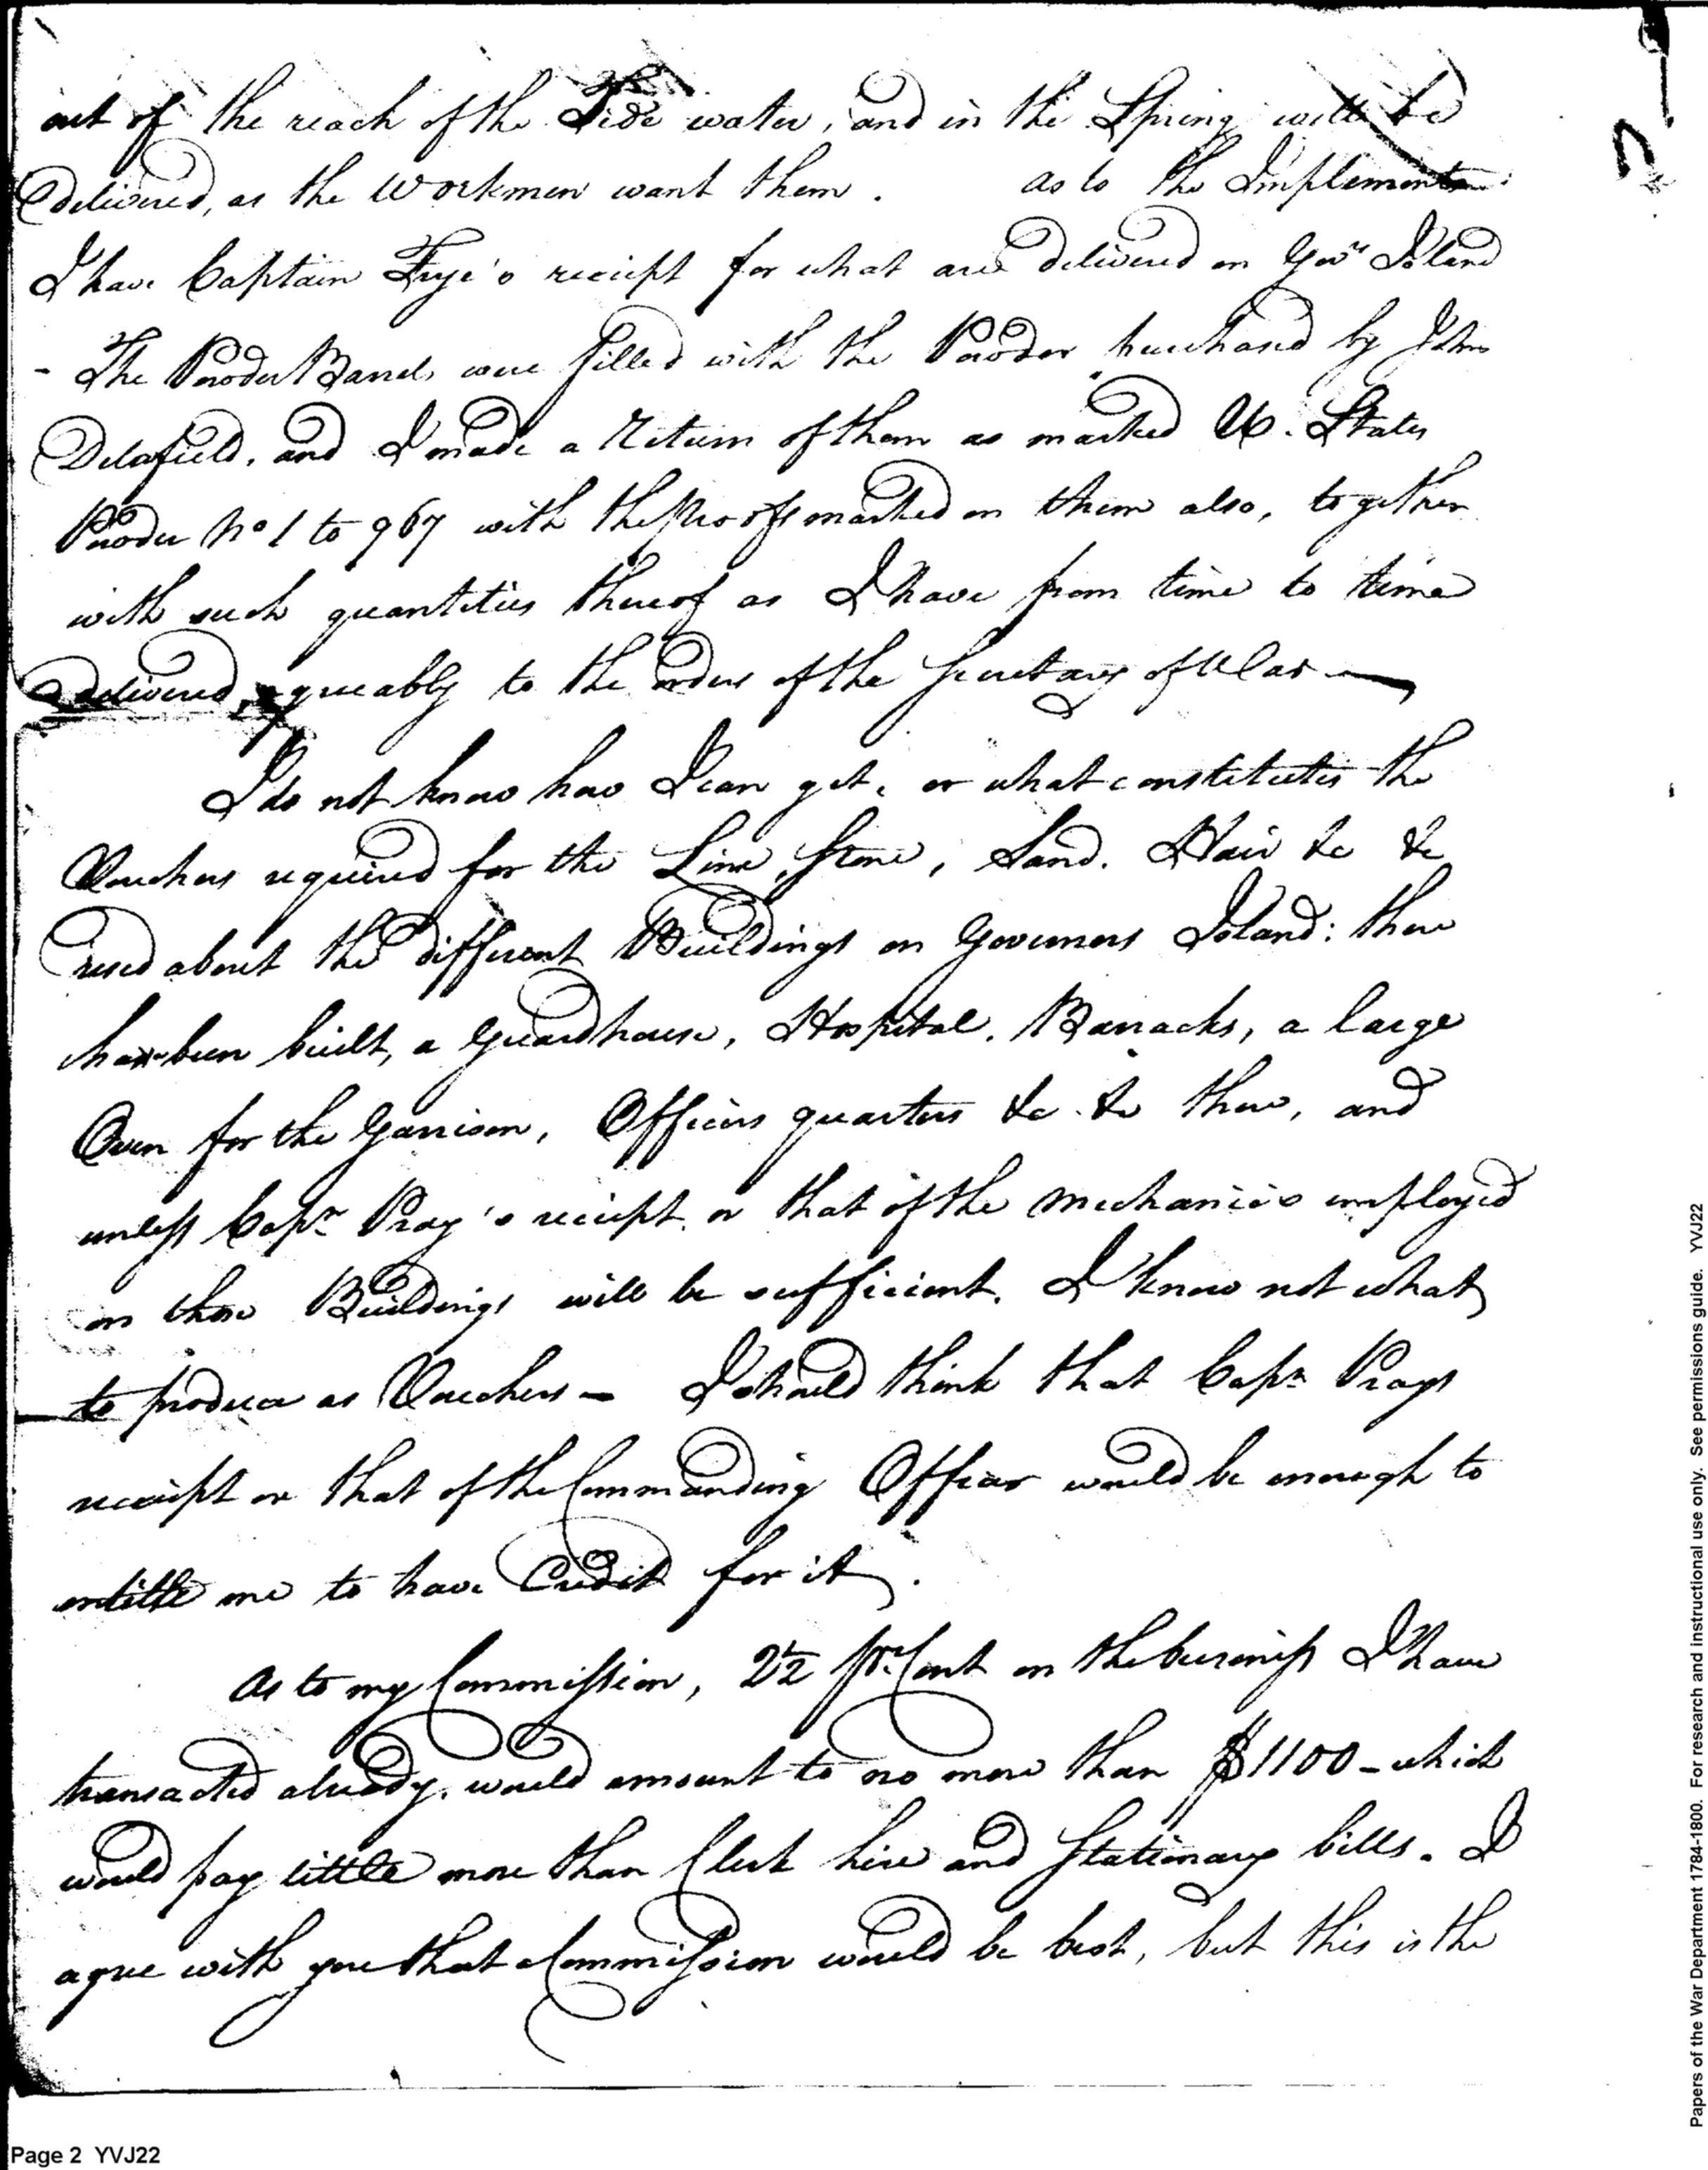 out of the reach of the Tide water, and in the Spring will be
delivered, as the Workmen want them. as to the Implements
I have Captain Frye's reciept for what are delivered on Govrs Island
- The Powder Barrels were filled with the Powder purchased by John
Delafield, and I made a Return of them as marked U. States
Powder No 1 to 967 with the proofs marked on them also, together
with such quantities thereof as I have from time to time
delivered, agreeably to the orders of the Secretary of War —
I do not know how I can get, or what constitutes the
Vouchers required for the Lime, Stone, Sand. Hair &c &c
used about the different Buildings on Governors Island: there
have been built, a Guardhouse, Hospital, Barracks, a large
Oven for the Garrison, Officers quarters &c &c there, and
unless Capn Pray's reciept, or that of the mechanics employed
on those Buildings will be sufficient, I know not what
to produce as Vouchers — I should think that Capn Prays
receipt or that of the Commanding Officer would be enough to
entitle me to have Credit for it.
As to my Commission, 2½ pr Cent on the business I have
transacted already, would amount to no more than $1100 - which
would pay little more than Clerk hire and Stationary bills. I
agree with you that Commission would be best, but this is the
Page 2 YVJ22
Papers of the War Department 1784-1800. For research and instructional use only. See permissions guide. YVJ22